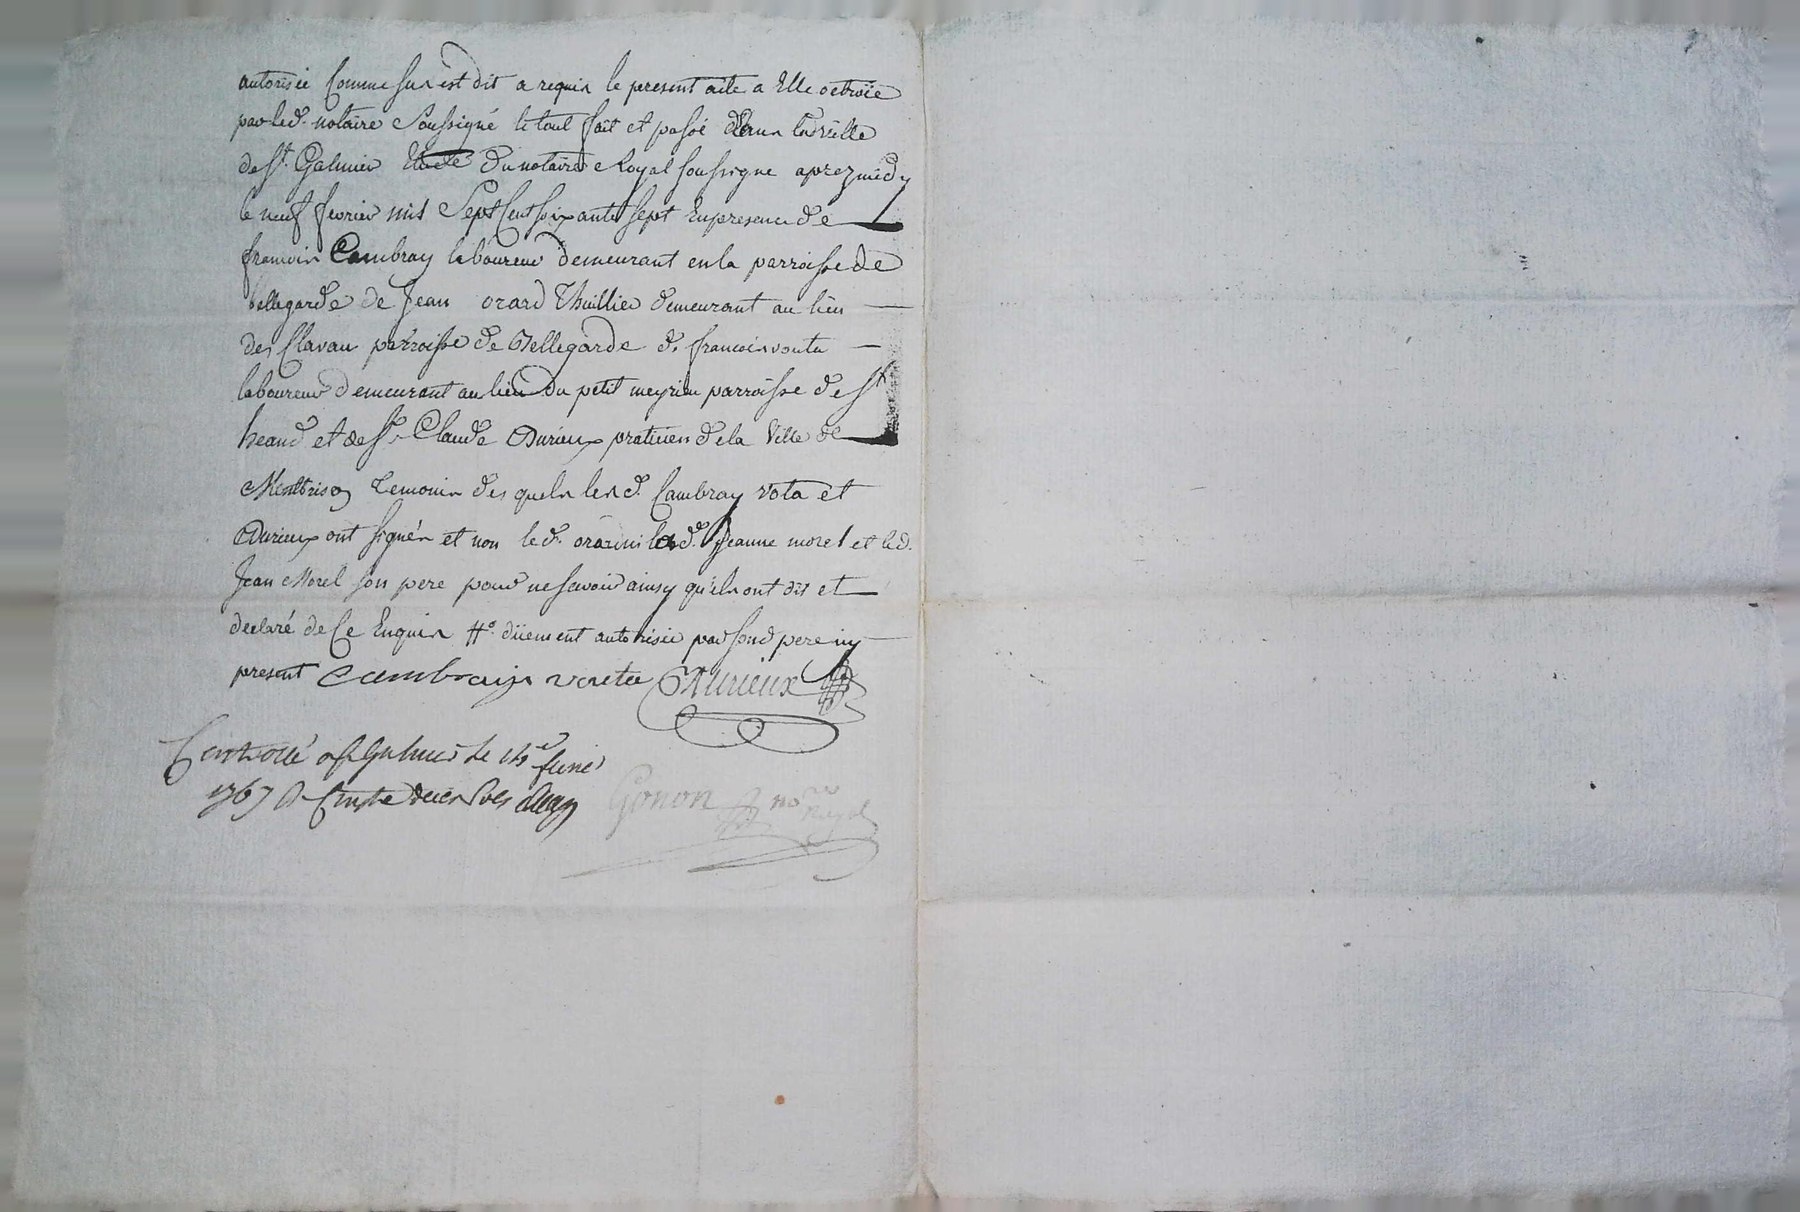 autorisée Comme sus est dit a requis le present acte a Elle octroïée
par led. notaire Soussigné le tout fait et passé dans la ville
de St. Galmier Etude du notaire Royal soussigne aprez midy
le neuf fevrier mil Sept Cent soixante sept En presence de
francois Cambray laboureur demeurant en la parroisse de
bellegarde de Jean orard thuillier demeurant au lieu
des Clavau parroisse de Bellegarde de francois vouta
laboureur demeurant au lieu du petit meyrieu parroisse de St
heand et de Sr. Claude Durieux praticien de la Ville de
Montbrison temoins des quels les d. Cambray vota et
Durieux ont signés et non le d. orard ni la d. Jeanne morel et led.
Jean Morel son pere pour ne scavoir ainsy qu'ils ont dit et
declaré de Ce Enquis #. düement autorisée par sond pere icy
present Cambray vouta Durieux
Controllé a St Galmier le 14e fevrier
1767
Gonon nore Royal